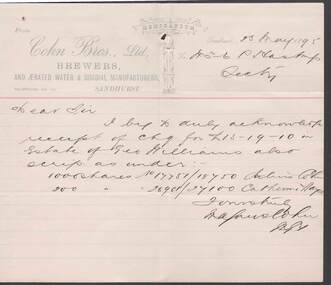 MEMORANDUM
From
Cohn Bros., Ltd.
BREWERS,
AND ÆRATED WATER & CORDIAL MANUFACTURERS,
SANDHURST
23 May 1895
To
Dear Sir
I beg to duly acknowledge
receipt of Chq for £13-19-10 in
Estate of Geo Williams also
scrip as under :-
1000 shares No 17751/18750
200 " 26901/27100
Yours truly